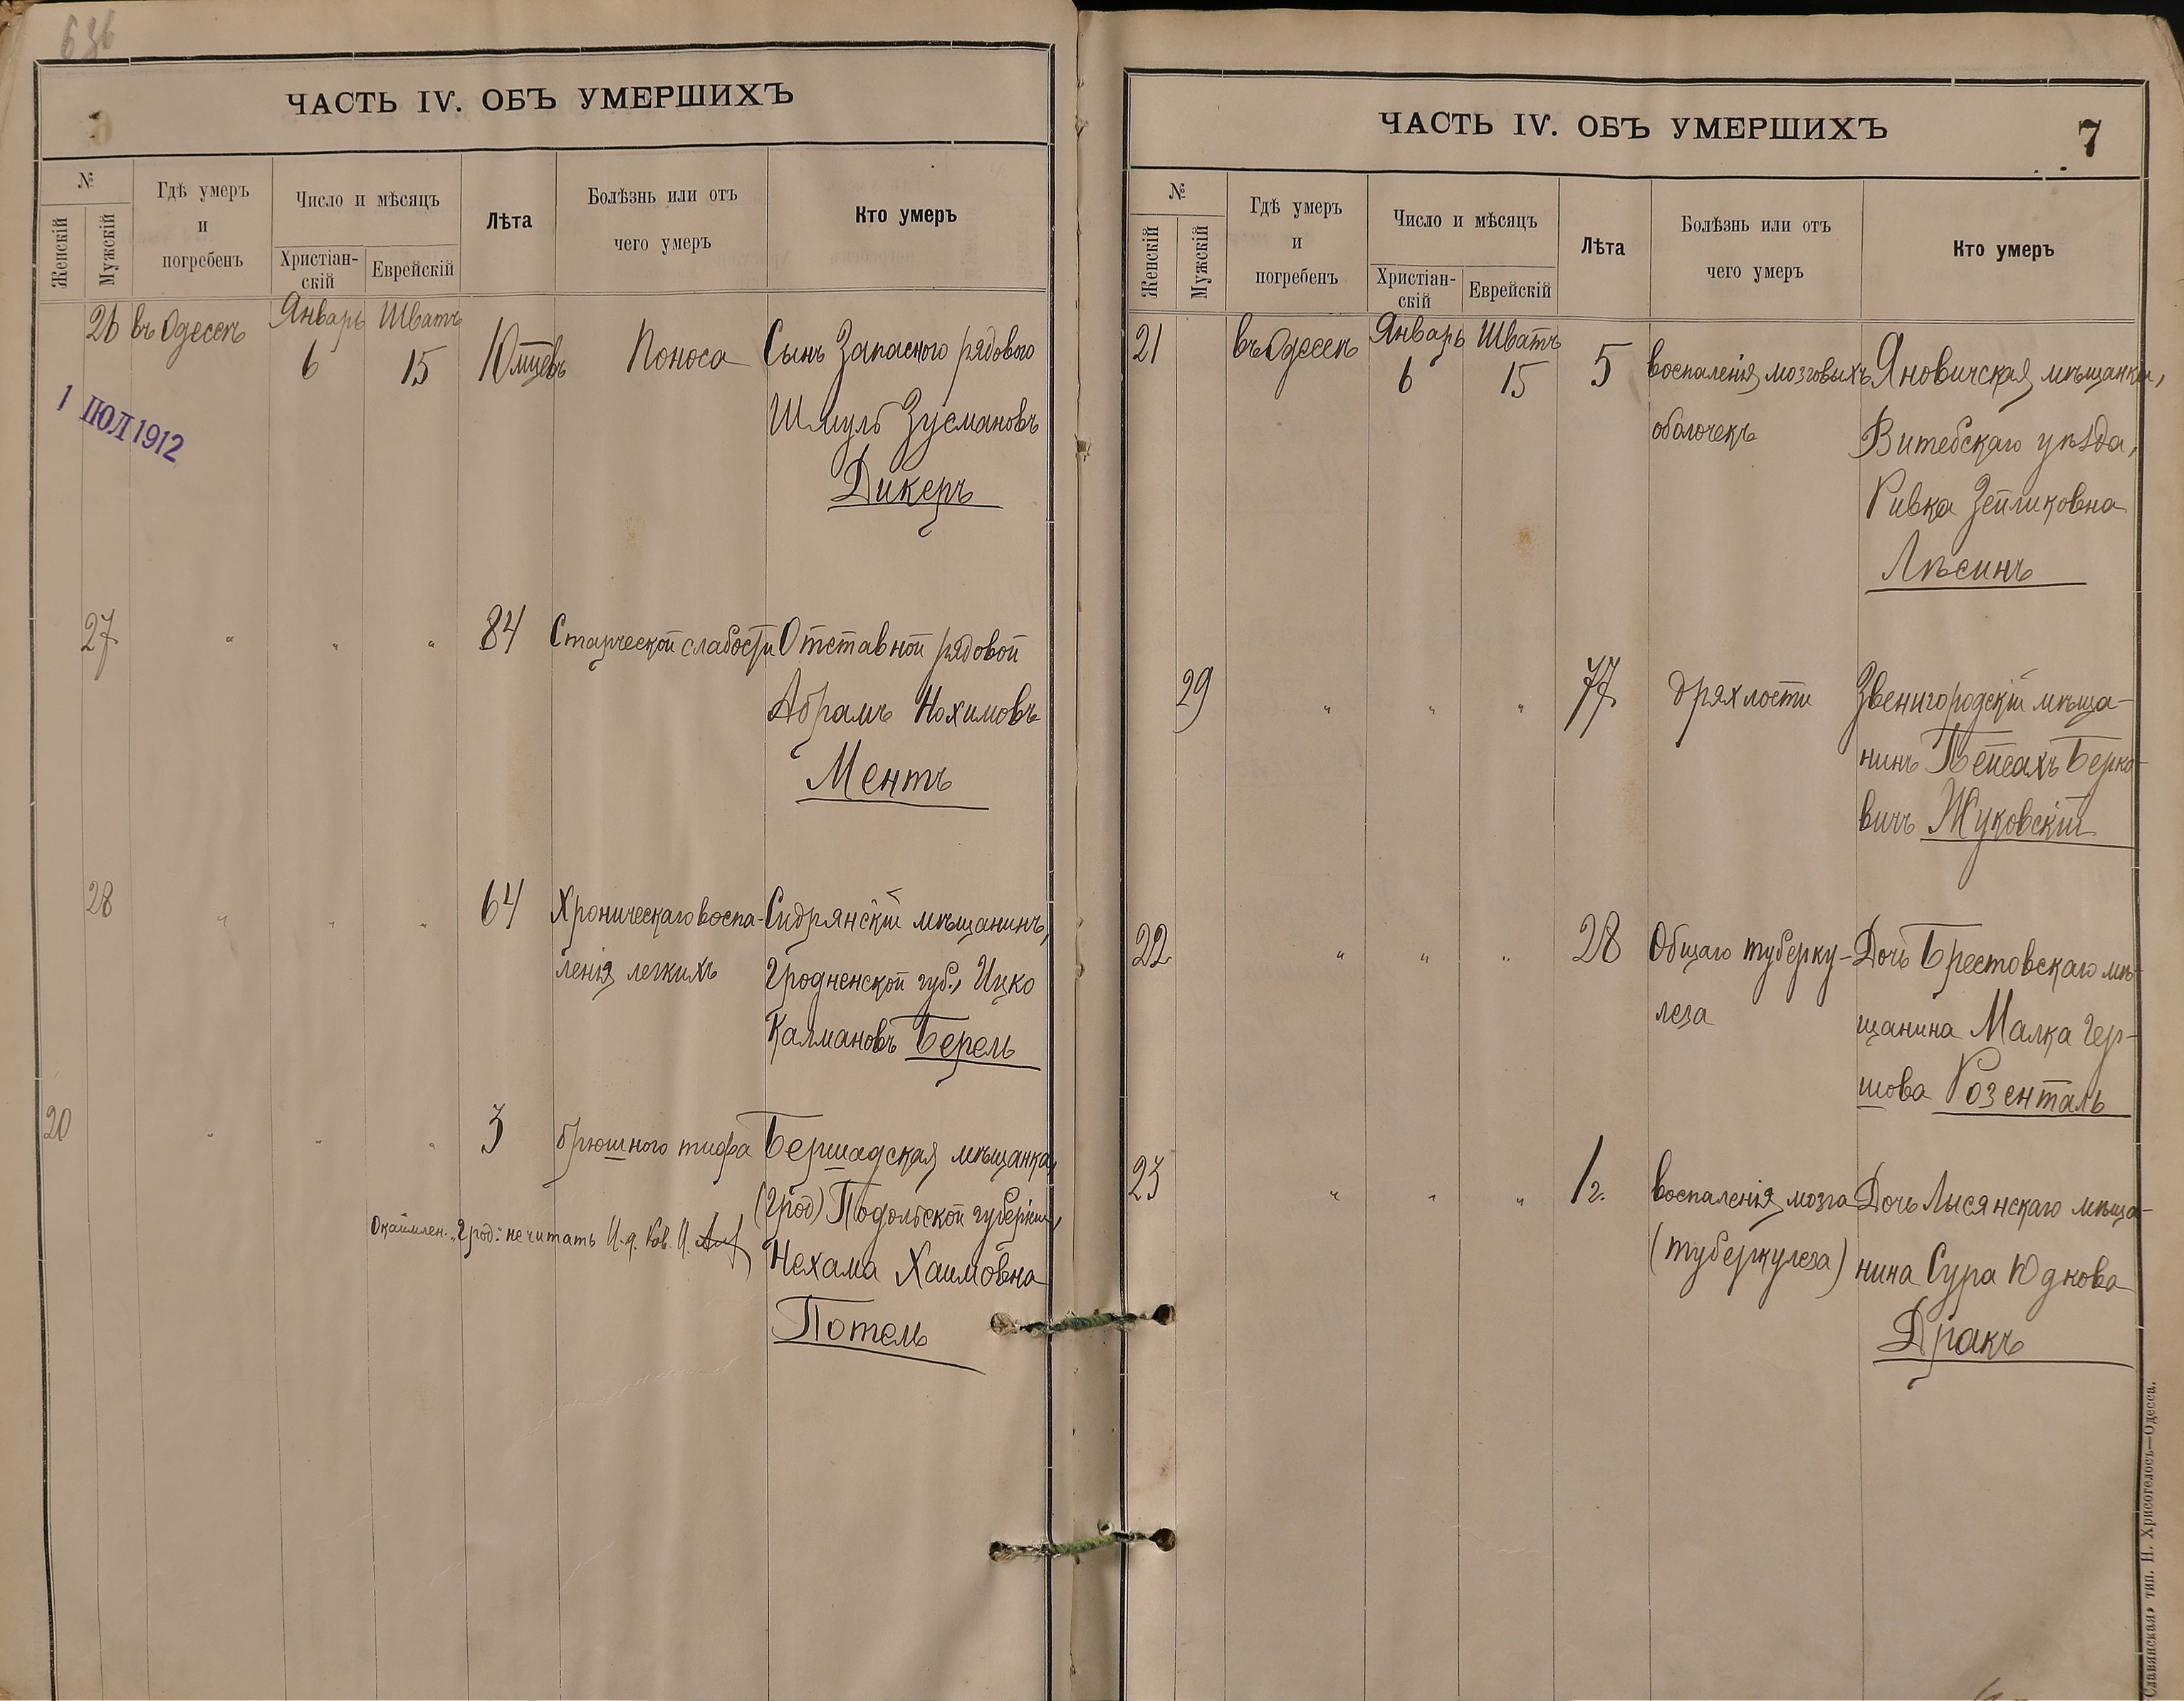 636
ЧАСТЬ IV. ОБЪ УМЕРШИХЪ
№
Женскій
Мужскій
Гдѣ умеръ
и
погребенъ
Число и мѣсяцъ
Христіан-
скій
Еврейскій
Лѣта
Болѣзнь или отъ
чего умеръ
Кто умеръ
26 въ Одессѣ Январь 6 Шватъ 15 10 мцевъ Поноса Сынъ Запасного рядового
Шмуль Зусмановъ
Дикеръ
1 ІЮЛ 1912
27 " " " 84 Старческой слабости Отставной рядовой
Абрамъ Нохимовъ
Ментъ
28 " " " 64 Хроническаго воспа- Сидрянскій мѣщанинъ,
ленія легкихъ Гродненской губ., Ицко
Калмановъ Берель
20 " " " 3 брюшного тифа Бершадская мѣщанка,
(Грод) Подольской губерніи,
Окаймлен. "Грод:" не читать И. д. Ков. И.
Нехама Хаимовна
Потель
ЧАСТЬ IV. ОБЪ УМЕРШИХЪ
7
№
Женскій
Мужскій
Гдѣ умеръ
и
погребенъ
Число и мѣсяцъ
Христіан-
скій
Еврейскій
Лѣта
Болѣзнь или отъ
чего умеръ
Кто умеръ
21 въ Одессѣ Январь 6 Шватъ 15 5 воспаленія мозговыхъ Яновичская мѣщанка,
оболочекъ Витебскаго уѣзда,
Ривка Зеиликовна
Лѣсинъ
29 " " " 77 дряхлости Звенигородскій мѣща-
нинъ Пейсахъ Берко-
вичъ Жуковскій
22 " " " 28 Общаго туберку- Дочь Брестовскаго мѣ-
леза щанина Малка Гер-
шова Розенталь
23 " " " 1 г. воспаленія мозга Дочь Лысянскаго мѣща-
(туберкулеза) нина Сура Юдкова
Дракъ
Славянская» тип. Н. Хрисогелосъ—Одесса.